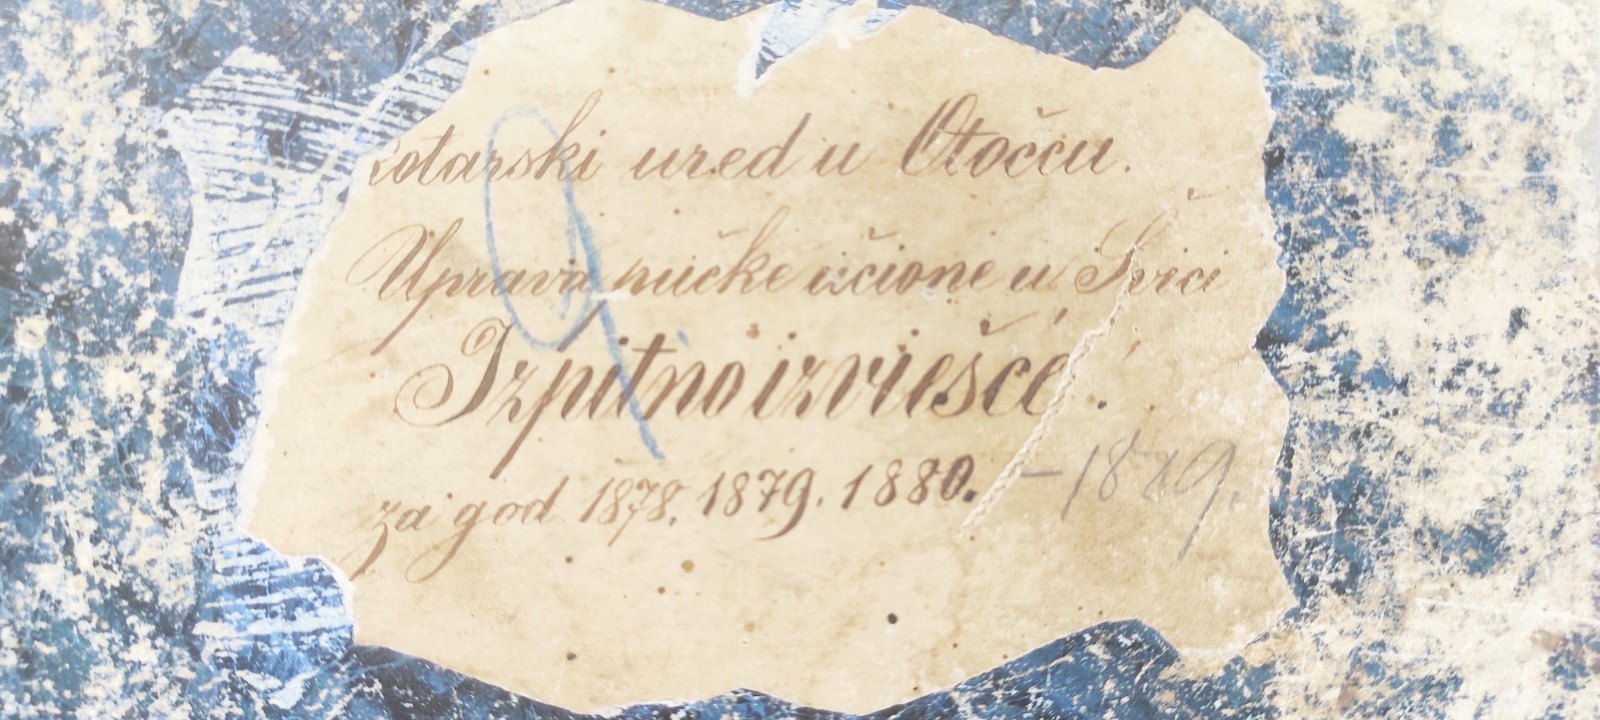 Kotarski ured u Otočcu.
Uprava pučke učione u Švici
Izpitno izviešće.
za god 1878. 1879. 1880.